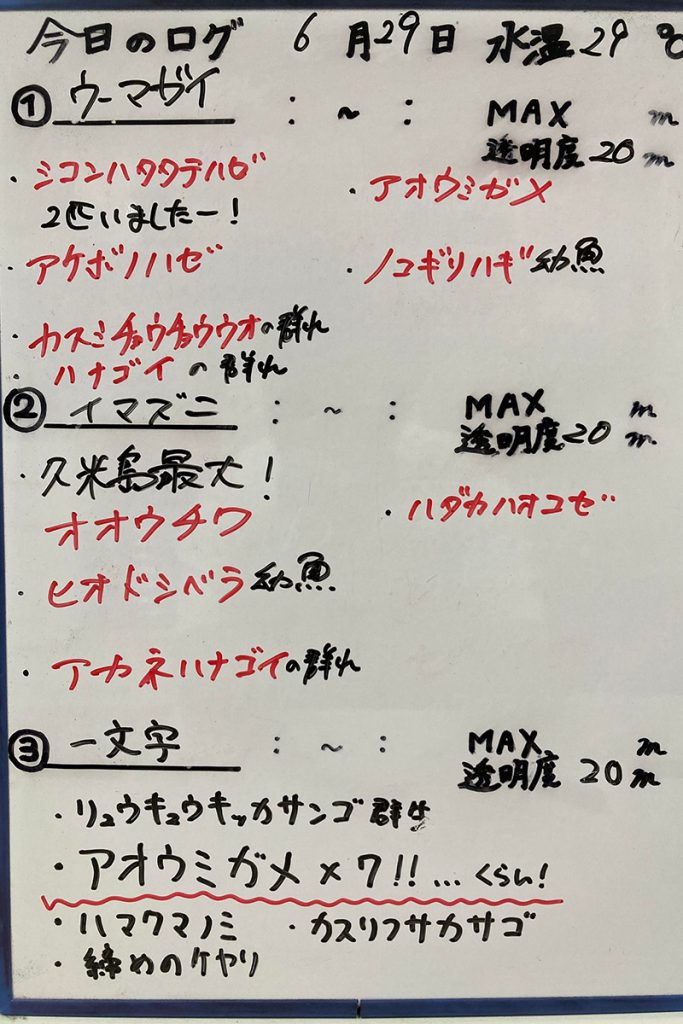 今日のログ 6月29日 水温29℃
① ウーマガイ : ~ : MAX m
透明度20m
・シコンハタタテハゼ
2匹いましたー!
・アオウミガメ
・アケボノハゼ
・ノコギリハギ幼魚
・カスミチョウチョウウオの群れ
・ハナゴイの群れ
② イマズニ : ~ : MAX m
透明度20m
・久米島最大!
オオウチワ
・ハダカハオコゼ
・ヒオドシベラ幼魚
・アカネハナゴイの群れ
③ 一文字 : ~ : MAX m
透明度20m
・リュウキュウキッカサンゴ群生
・アオウミガメ×7!!...くらい!
・ハマクマノミ ・カスリフサカサゴ
・締めのケヤリ